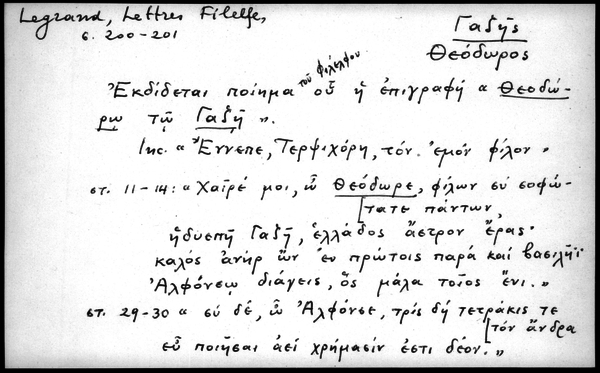 Legrand, Lettres Filelfe,
σ. 200-201
Γαζῆς
Θεόδωρος
Ἐκδίδεται ποίημα τοῦ Φιλέλφου οὗ ἡ ἐπιγραφή « Θεοδώ-
ρῳ τῷ Γαζῇ ».
Inc. « Ἔννεπε, Τερψιχόρη, τόν ἐμόν φίλον »
στ. 11-14: « Χαῖρέ μοι, ὦ Θεόδωρε, φίλων σύ σοφώ-
[τατε πάντων,
ἡδυεπῆ Γαζῆ, ἑλλάδος ἄστρον ἔρας·
καλός ἀνήρ ὢν ἐν πρώτοις παρά καί βασιλῆϊ
Ἀλφόνσῳ διάγεις, ὃς μάλα τοῖος ἔνι. »
στ. 29-30 « σύ δέ, ὦ Ἀλφόνσε, τρίς δή τετράκις τε
[τόν ἄνδρα
εὖ ποιῆσαι ἀεί χρήμασίν ἐστι δέον. »